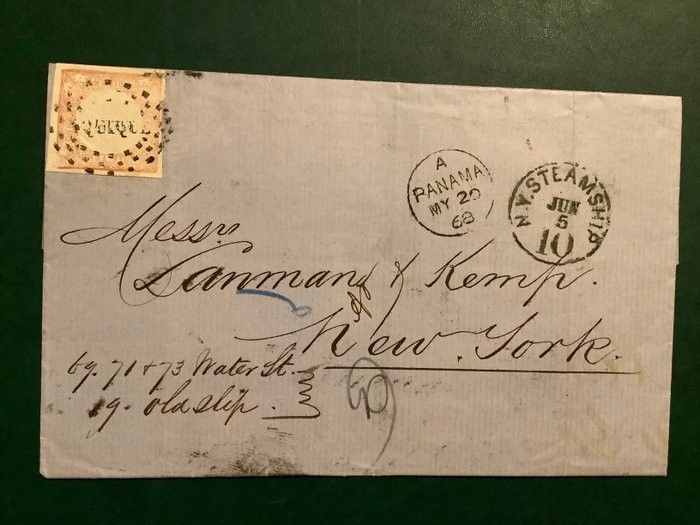 IQUIQUE
A
PANAMA
MY 20
68
N.Y. STEAMSHIP
JUN
5
10
Messrs
Lanman & Kemp.
New York.
69. 71 + 73 Water St.
19. old slip.